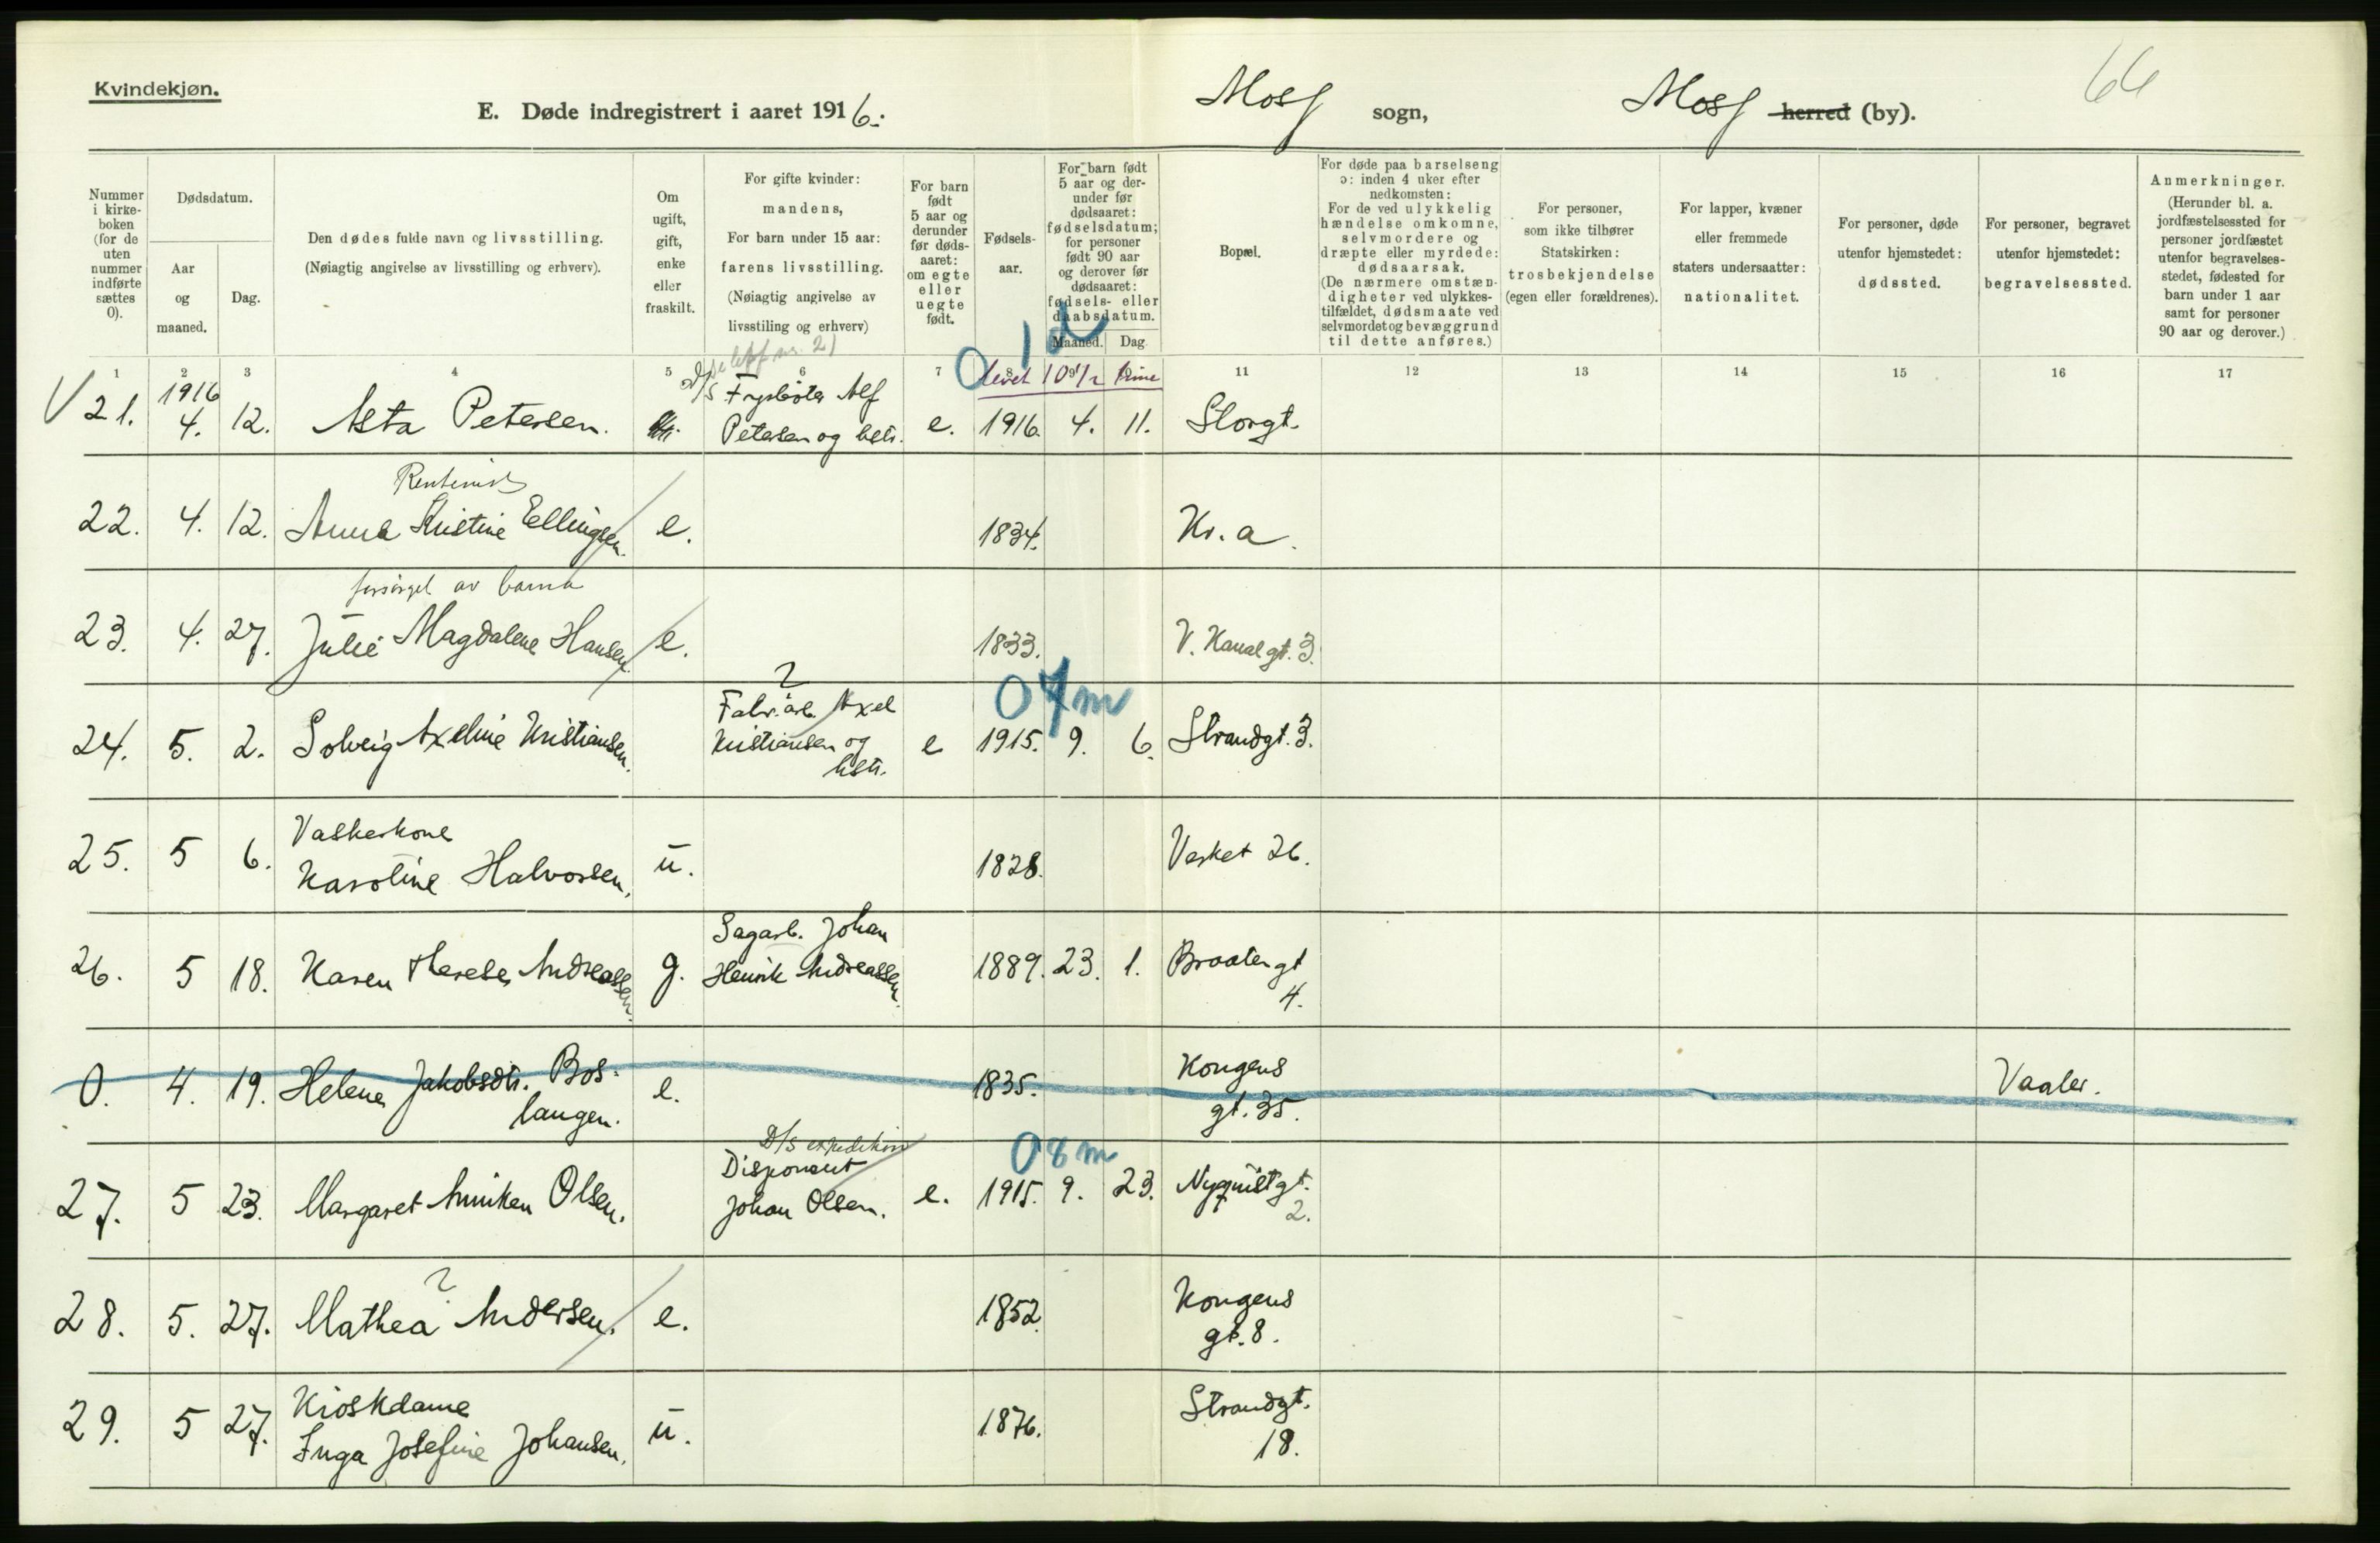 Kvindekjøn.
E. Døde indregistrert i aaret 1916.
Moss sogn,
Moss herred (by).
Nummer i kirke-boken (for de uten nummer indførte sættes 0).
Dødsdatum.
Aar og maaned.
Dag.
Den dødes fulde navn og livsstilling.
(Nøiagtig angivelse av livsstilling og erhverv).
Om ugift, gift, enke eller fraskilt.
For gifte kvinder: mandens,
For barn under 15 aar: farens livsstilling.
(Nøiagtig angivelse av livsstiling og erhverv)
For barn født 5 aar og derunder før døds-aaret: om egte eller uegte født.
Fødsels-aar.
For barn født 5 aar og der-under før dødsaaret: fødselsdatum; for personer født 90 aar og derover før dødsaaret: fødsels- eller daabsdatum.
Maaned. Dag
Bopæl.
For døde paa barselseng ɔ: inden 4 uker efter nedkomsten:
For de ved ulykkelig hændelse omkomne, selvmordere og dræpte eller myrdede: dødsaarsak.
(De nærmere omstæn-digheter ved ulykkes-tilfældet, dødsmaate ved selvmordet og bevæggrund til dette anføres.)
For personer, som ikke tilhører Statskirken: trosbekjendelse (egen eller forældrenes).
For lapper, kvæner eller fremmede staters undersaatter: nationalitet.
For personer, døde utenfor hjemstedet: dødssted.
For personer, begravet utenfor hjemstedet: begravelsessted.
Anmerkninger.
(Herunder bl. a. jordfæstelsessted for personer jordfæstet utenfor begravelses-stedet, fødested for barn under 1 aar samt for personer 90 aar og derover.)
1 2 3 4 5 6 7 8 9 10 11 12 13 14 15 16 17
0 1 d
levet 10 1/2 time
21. 1916 4. 12. Asta Petersen. D/S Fyrbøter Alf Petersen og hstr. e. 1916. 4. 11. Storgt.
22. 4. 12. Rentenist Anna Kristine Ellingsen. e. 1834. Kr.a.
23. 4. 27. forsørget av barna Julie Magdalene Hansen. e. 1833. V. Kanalgt. 3.
0 7 m
24. 5. 2. Solveig Axeline Kristiansen. ? Fabr.arb. Axel Kristiansen og hstr. e 1915. 9. 6. Strandgt. 3.
25. 5 6. Vaskerkone Karoline Halvorsen. u. 1828. Verket 26.
26. 5 18. Karen Therese Andreassen. g. Sagarb. Johan Henrik Andreassen. 1889. 23. 1. Braatengt 4.
0. 4. 19. Helene Jakobsdtr. Bos-langen. e. 1835. Kongens gt. 35. Vaaler.
0 8 m
27. 5 23. Margaret Anniken Olsen. D/S expedition Disponent Johan Olsen. e. 1915. 9. 23. Nyquistgt. 2.
28. 5. 27. ? Mathea Andersen. e. 1852. Kongens gt. 8.
29. 5 27. Kioskdame Inga Josefine Johansen. u. 1876. Strandgt. 18.